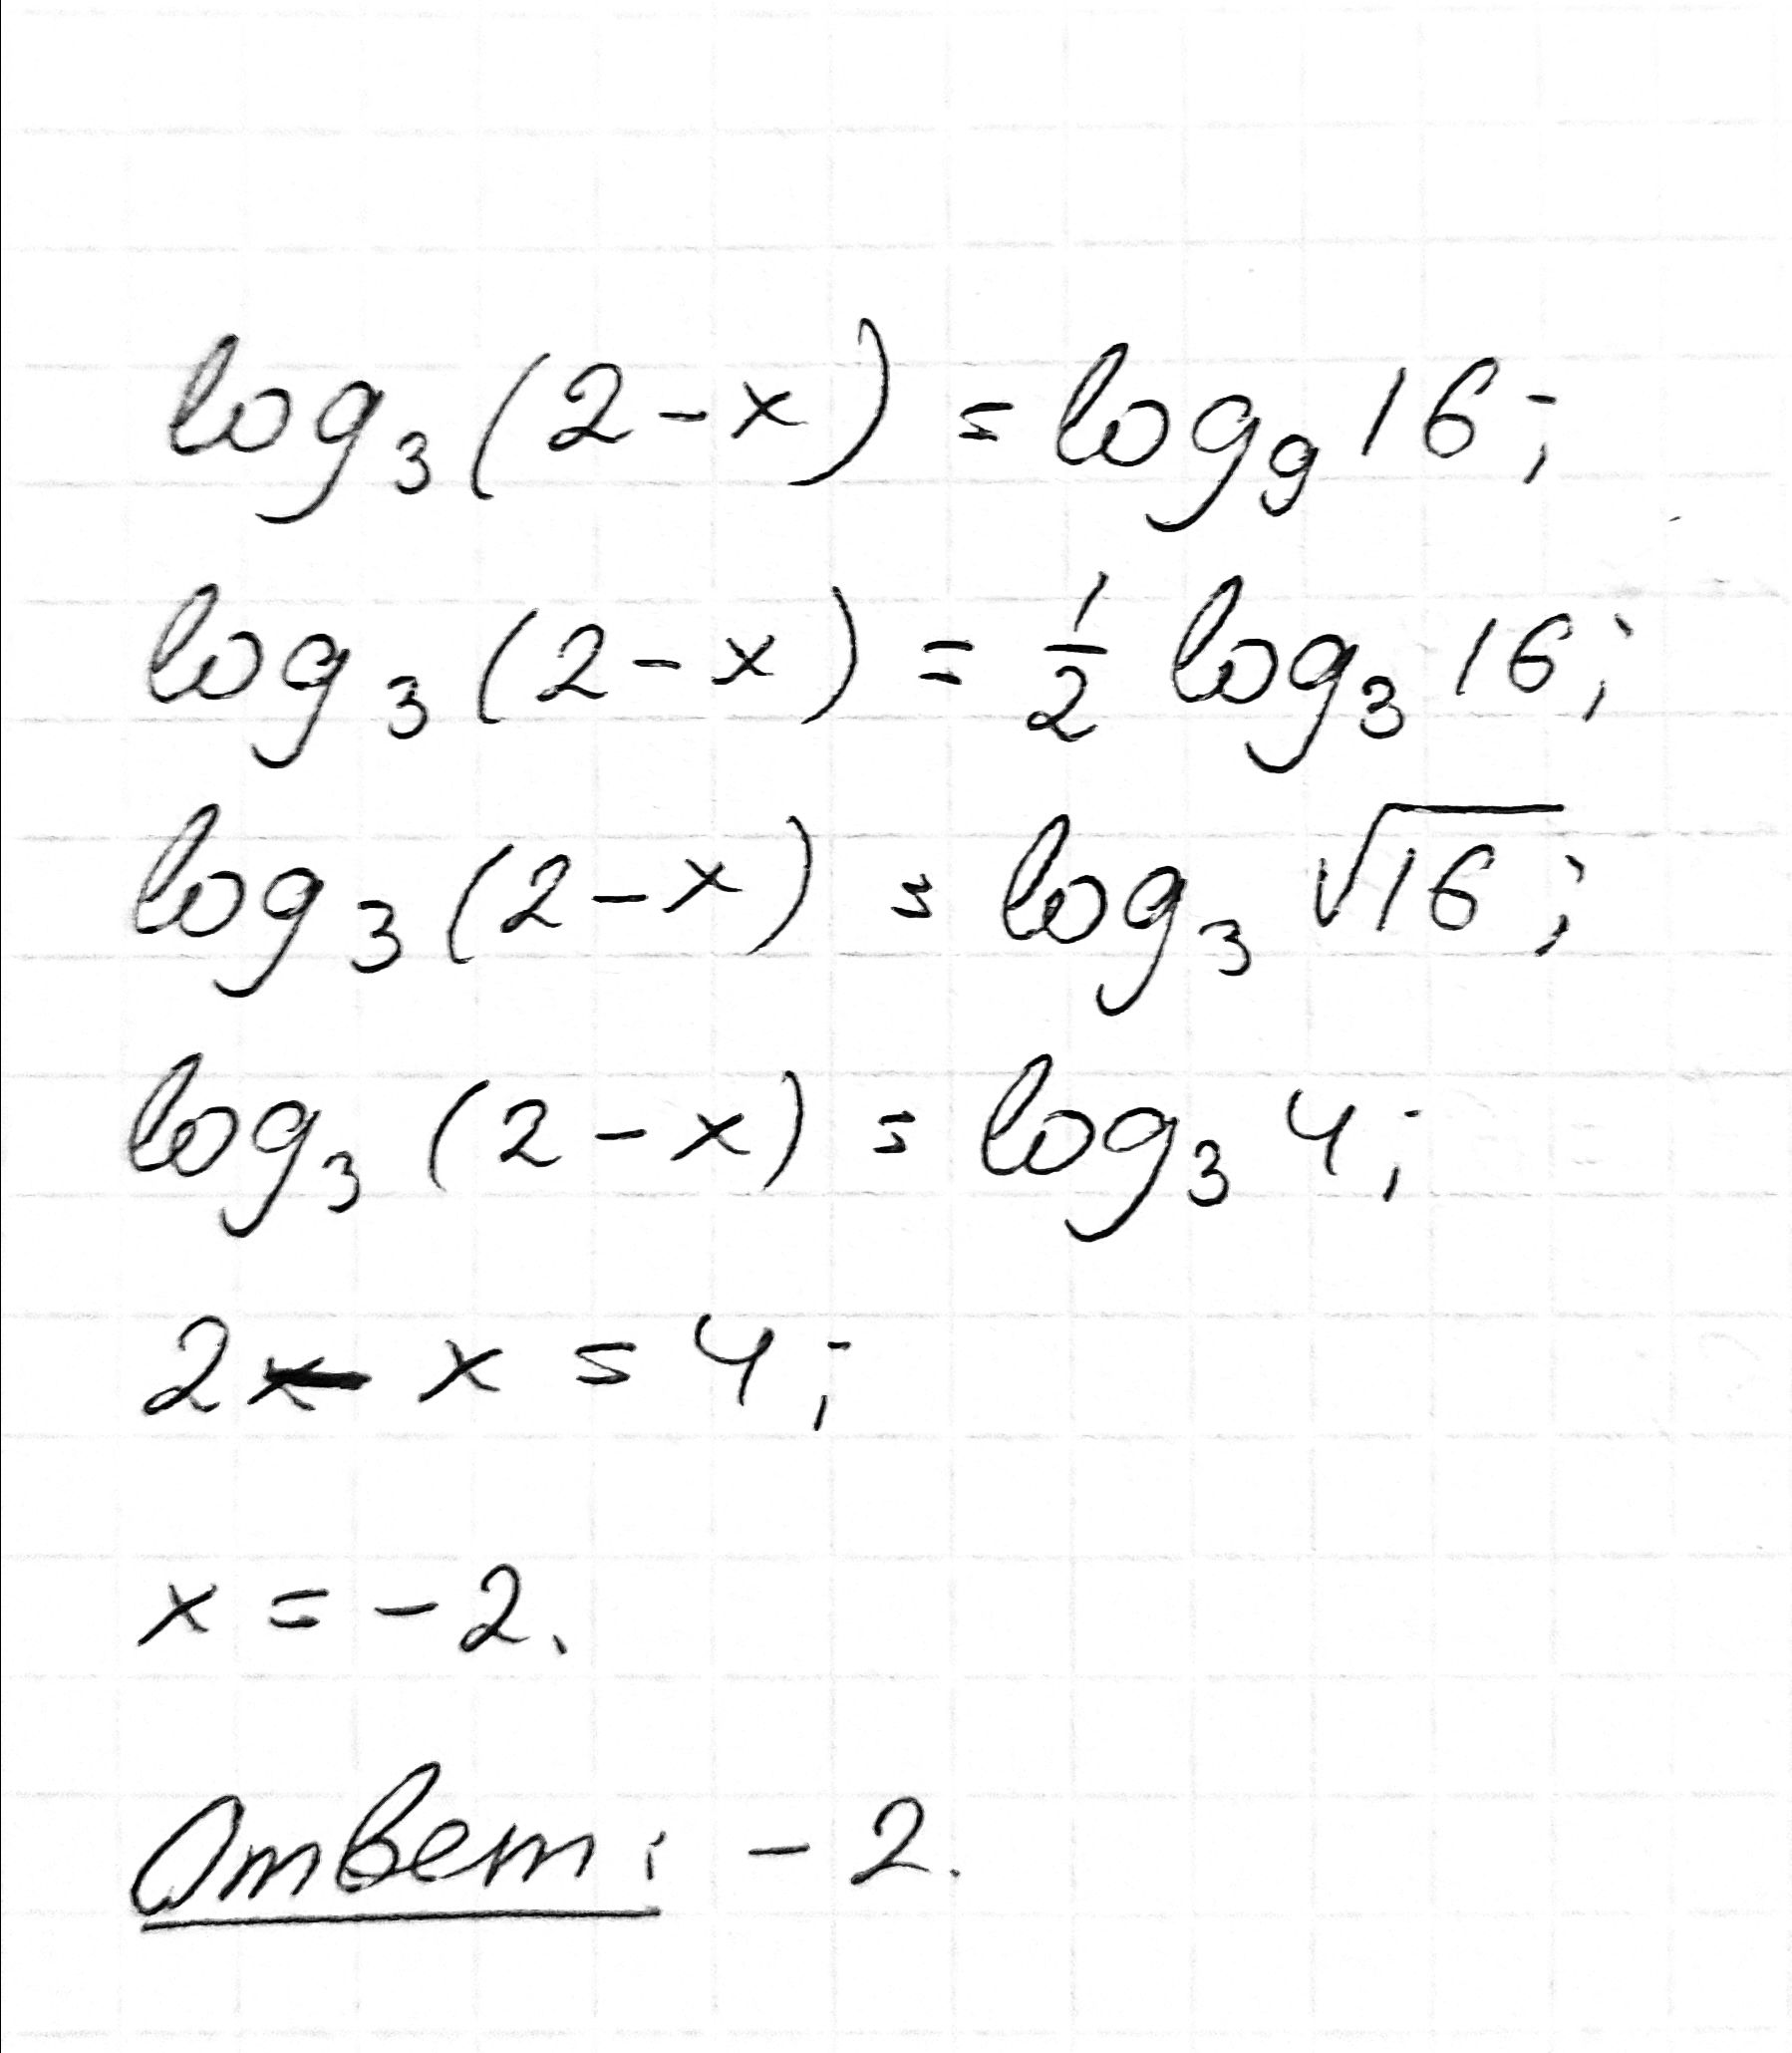 log₃(2-x) = log₉16;
log₃(2-x) = 1/2 log₃16;
log₃(2-x) = log₃√16;
log₃(2-x) = log₃4;
2 - x = 4;
x = -2.
Ответ: -2.